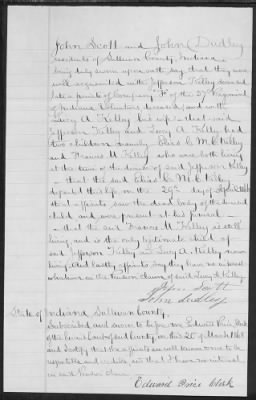 John Scott and John Dudley
residents of Sullivan County, Indiana
being duly sworn upon oath say that they were
well acquainted with Jefferson Kelley
late a private of Company "F" of the 27th Regiment
of Indiana Volunteers deceased and with
Lucy A. Kelley his wife - that said
Jefferson Kelley and Lucy A. Kelley had
two children namely
and Francis M. Kelley who were both living
at the time of the death of said Jefferson Kelley
- that the said
departed this life on the 29th day of April
that affiants saw the dead body of the deceased
child and were present at his funeral -
- that the said Francis M. Kelley is still
living and is the only legitimate child of
said Jefferson Kelley and Lucy A. Kelley now
living. And lastly affiants say they have no interest
whatever in the Pension claim of said Lucy A. Kelley
John Scott
John Dudley
State of Indiana Sullivan County.
Subscribed and sworn to before me Edward Price Clerk
of the Circuit Court of said County on this 25 of March
and I certify that the affiants are well known to me to be
reputable and credible, and that I have no interest
in said Pension claim
Edward Price Clerk